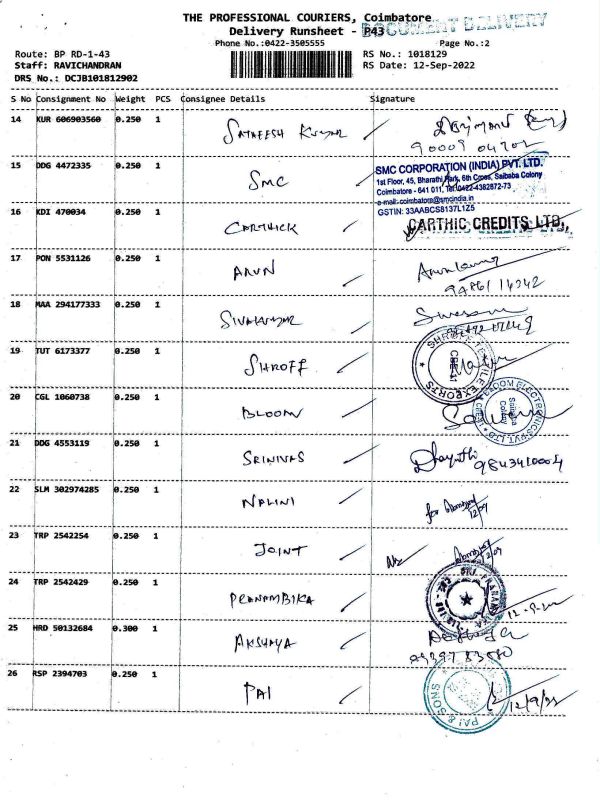 THE PROFESSIONAL COURIERS, Coimbatore
DOCUMENT DELIVERY
Delivery Runsheet - P43
Phone No.:0422-3505555 Page No.:2
Route: BP RD-1-43 RS No.: 1018129
Staff: RAVICHANDRAN RS Date: 12-Sep-2022
DRS No.: DCJB101812902
S No Consignment No Weight PCS Consignee Details Signature
14 KUR 606903560 0.250 1 SATHEESH KUMAR
15 DDG 4472335 0.250 1 SMC
SMC CORPORATION (INDIA) PVT. LTD.
1st Floor, 45, Bharathi Park, 6th Cross, Saibaba Colony
Coimbatore - 641 011, Tel:0422-4382872-73
e-mail:coimbatore@smcindia.in
GSTIN: 33AABCS8137L1Z5
16 KDI 470034 0.250 1 CARTHICK CARTHIC CREDITS LTD,
17 PON 5531126 0.250 1 ARUN
18 MAA 294177333 0.250 1 SIVAKUMAR
19 TUT 6173377 0.250 1 SHROFF SHROFF TEXTILE EXPORTS
20 CGL 1060738 0.250 1 BLOOM
Saibaba Colony
21 DDG 4553119 0.250 1 SRINIVAS
22 SLM 302974285 0.250 1 NALINI for 12/09
23 TRP 2542254 0.250 1 JOINT 12/09
24 TRP 2542429 0.250 1 PRANAMBIKA
25 HRD 50132684 0.300 1 AKSHAYA
26 RSP 2394703 0.250 1 PAI PAI & SONS 12/9/22